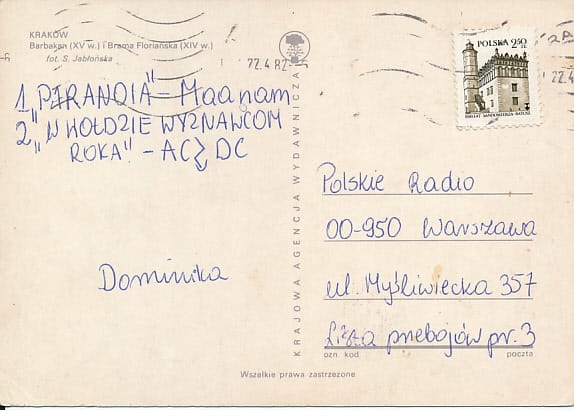 KRAKÓW
Barbakan (XV w.) i Brama Floriańska (XIV w.)
fot. S. Jabłońska
22.4.82
22.4
POLSKA 2,50 ZŁ
1. "PIRANOIA" – Maanam
2. "W HOŁDZIE WYZNAWCOM
ROKA" – AC⚡DC
Dominika
KRAJOWA AGENCJA WYDAWNICZA
Polskie Radio
00-950 Warszawa
ul. Myśliwiecka 357
Lista przebojów pr. 3
ozn. kod.
poczta
Wszelkie prawa zastrzeżone